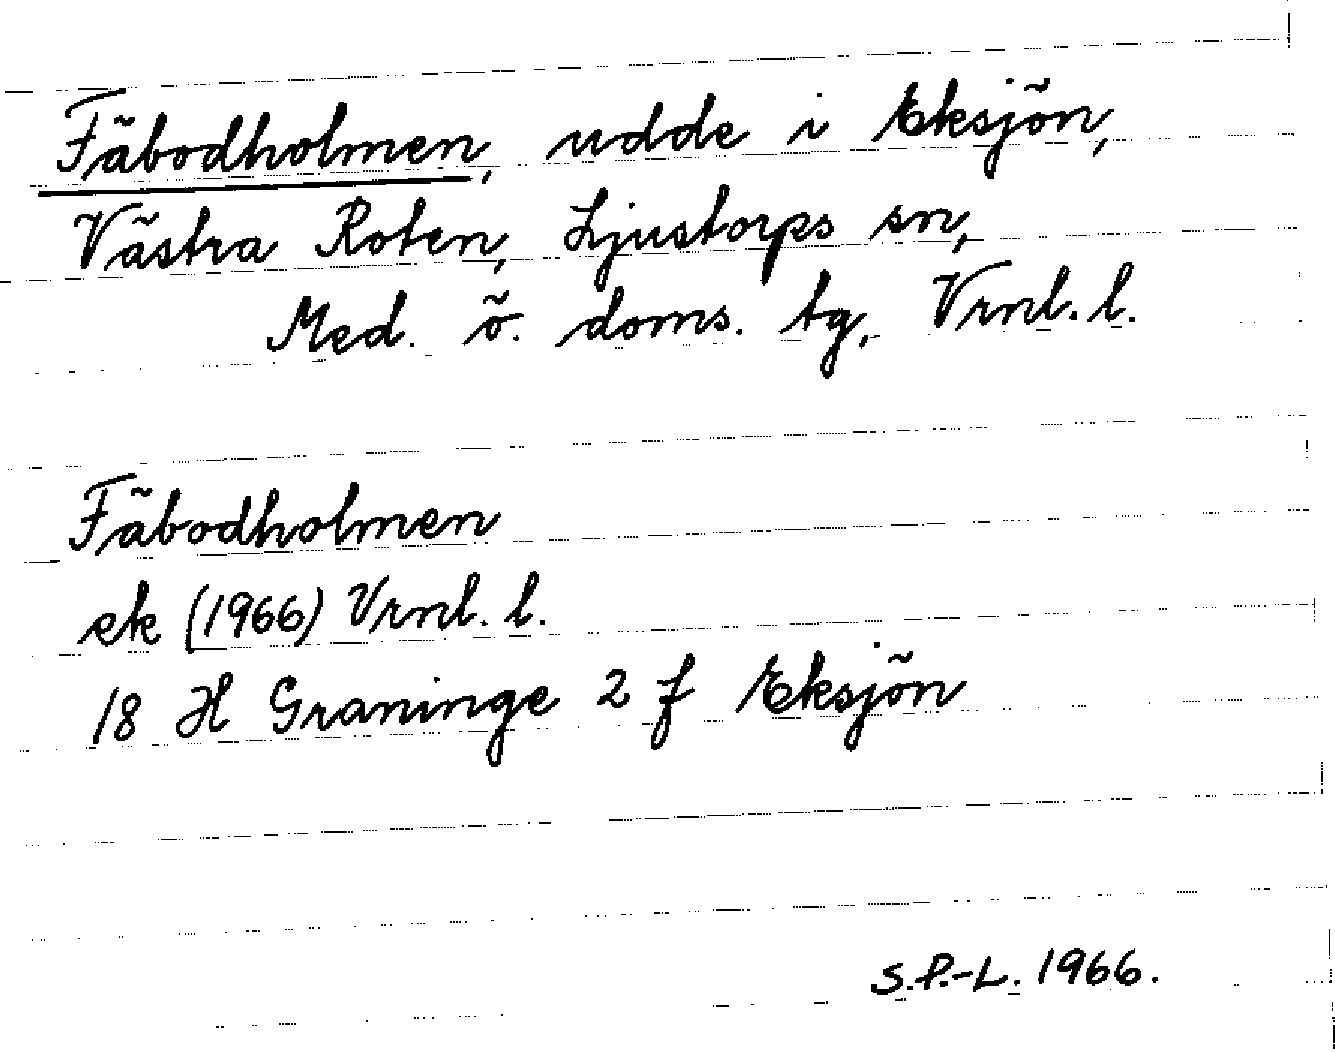 Fäbodholmen, udde i Eksjön,
Västra Roten, Ljustorps sn,
Med. ö. doms. tg, Vrnl. l.
Fäbodholmen
ek (1966) Vrnl. l.
18 H Graninge 2 f Eksjön
S.P.-L. 1966.